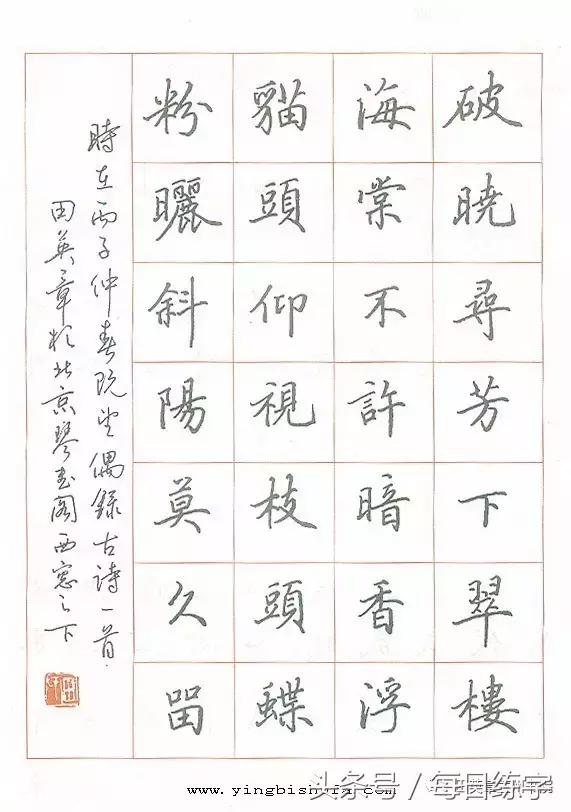 破曉尋芳下翠樓
海棠不許暗香浮
貓頭仰視枝頭蝶
粉曬斜陽莫久畱
時在丙子仲春既望偶錄古詩一首
田英章於北京琴書閣西窗之下
www.yingbishufa.com
头条号／每日练字